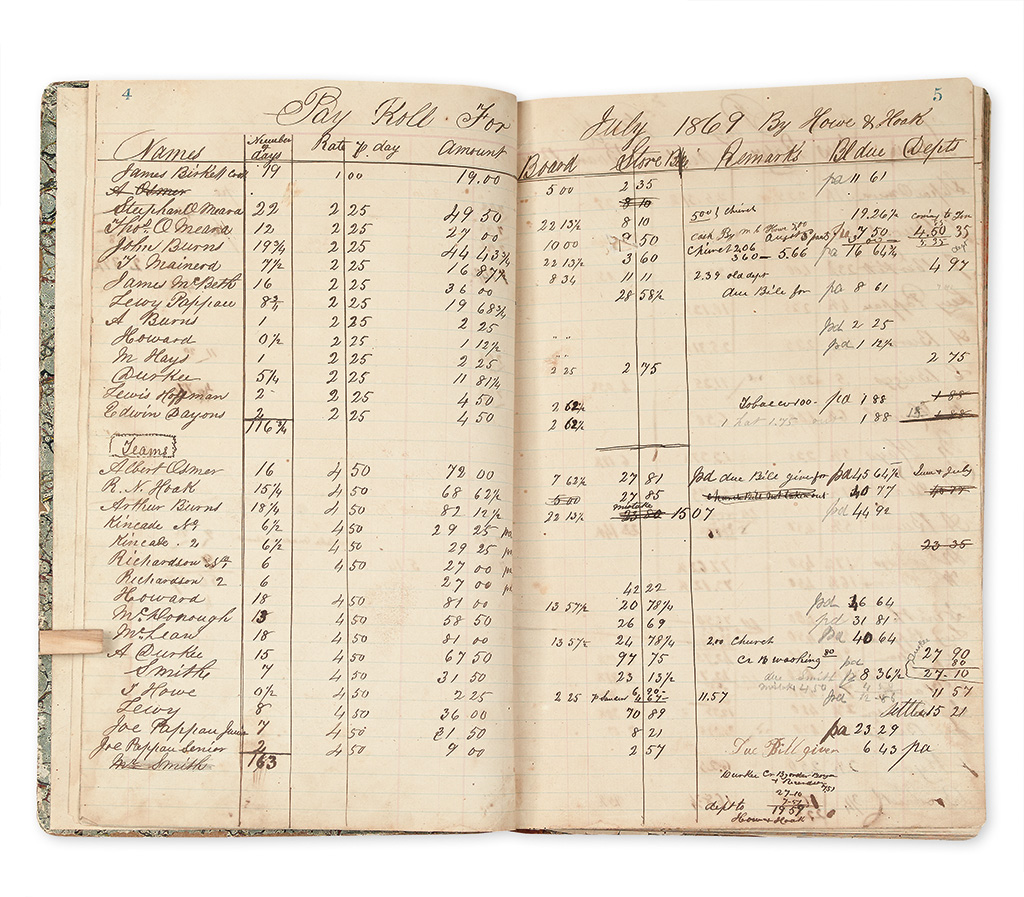 4
Pay Roll For
Names Number of days Rate p. day Amount
James Birkett 19 1 00 19.00
A Osmer
Stephan O Meara 22 2 25 49 50
Thos. O Meara 12 2 25 27 00
John Burns 19 3/4 2 25 44 43 3/4
T. Mainerd 7 1/2 2 25 16 87 1/2
James McBeth 16 2 25 36 00
Lewy Pappau 8 3/4 2 25 19 68 3/4
A Burns 1 2 25 2 25
Howard 0 1/2 2 25 1 12 1/2
M Hays 1 2 25 2 25
Durkee 5 1/4 2 25 11 81 1/4
Lewis Hoffman 2 2 25 4 50
Edwin Bayons 2 2 25 4 50
116 3/4
Teams
Albert Osmer 16 4 50 72 00
R. N. Hoak 15 1/4 4 50 68 62 1/2
Arthur Burns 18 1/4 4 50 82 12 1/2
Kincade No 6 1/2 4 50 29 25
Kincade . 2 6 1/2 4 50 29 25
Richardson 6 4 50 27 00
Richardson 2 6 27 00
Howard 18 4 50 81 00
McDonough 13 4 50 58 50
McLean 18 4 50 81 00
A Durkee 15 4 50 67 50
Smith 7 4 50 31 50
T Howe 0 1/2 4 50 2 25
Lewy 8 4 50 36 00
Joe Pappau Junior 7 4 50 31 50
Joe Pappau Senior 2 4 50 9 00
Mr Smith 163
5
July 1869 By Howe & Hoak
Board Store Remarks Bl due Depts
5 00 2 35 pa 11 61
8 10
22 13 1/2 8 10 500 church 19.26 1/2 coming to
10 00 50 cash By 7 50 4.50 35
22 13 1/2 3 60 church 2.06 360 - 5.66 pa 16 64 1/2
8 34 11 11 2.39 old dept 4 97
28 58 1/2 due Bill for pa 8 61
" " pd 2 25
" " pd 1 12 1/2
2 25 2 75 2 75
2 62 1/2 Tobacco 100- pa 1 88 1 88
2 62 1/2 1 hat 1.75 1 88 1 88
7 62 1/2 27 81 pd due Bill give for pd 45 64 1/2 June & July
5 00 27 85 Church Bill not taken out 40 77 40 77
mistake
22 13 1/2 23 80 15 07 pd 44 92
23 35
42 22
13 57 1/2 20 78 1/4 pd 36 64
26 69 pd 31 81
13 57 1/2 24 78 1/4 200 Church pd 40 64
97 75 Cr B washing 80 pd 27 90
80
23 13 1/2 due smith pd 8 36 1/2 27-10
2 25 11.57 11 57
70 89 Settled 15 21
8 21 pa 23 29
2 57 Due Bill given 6 43 pa
Durkee Cr By order
27-10
7-51
dept to 19 59
Howe & Hoak